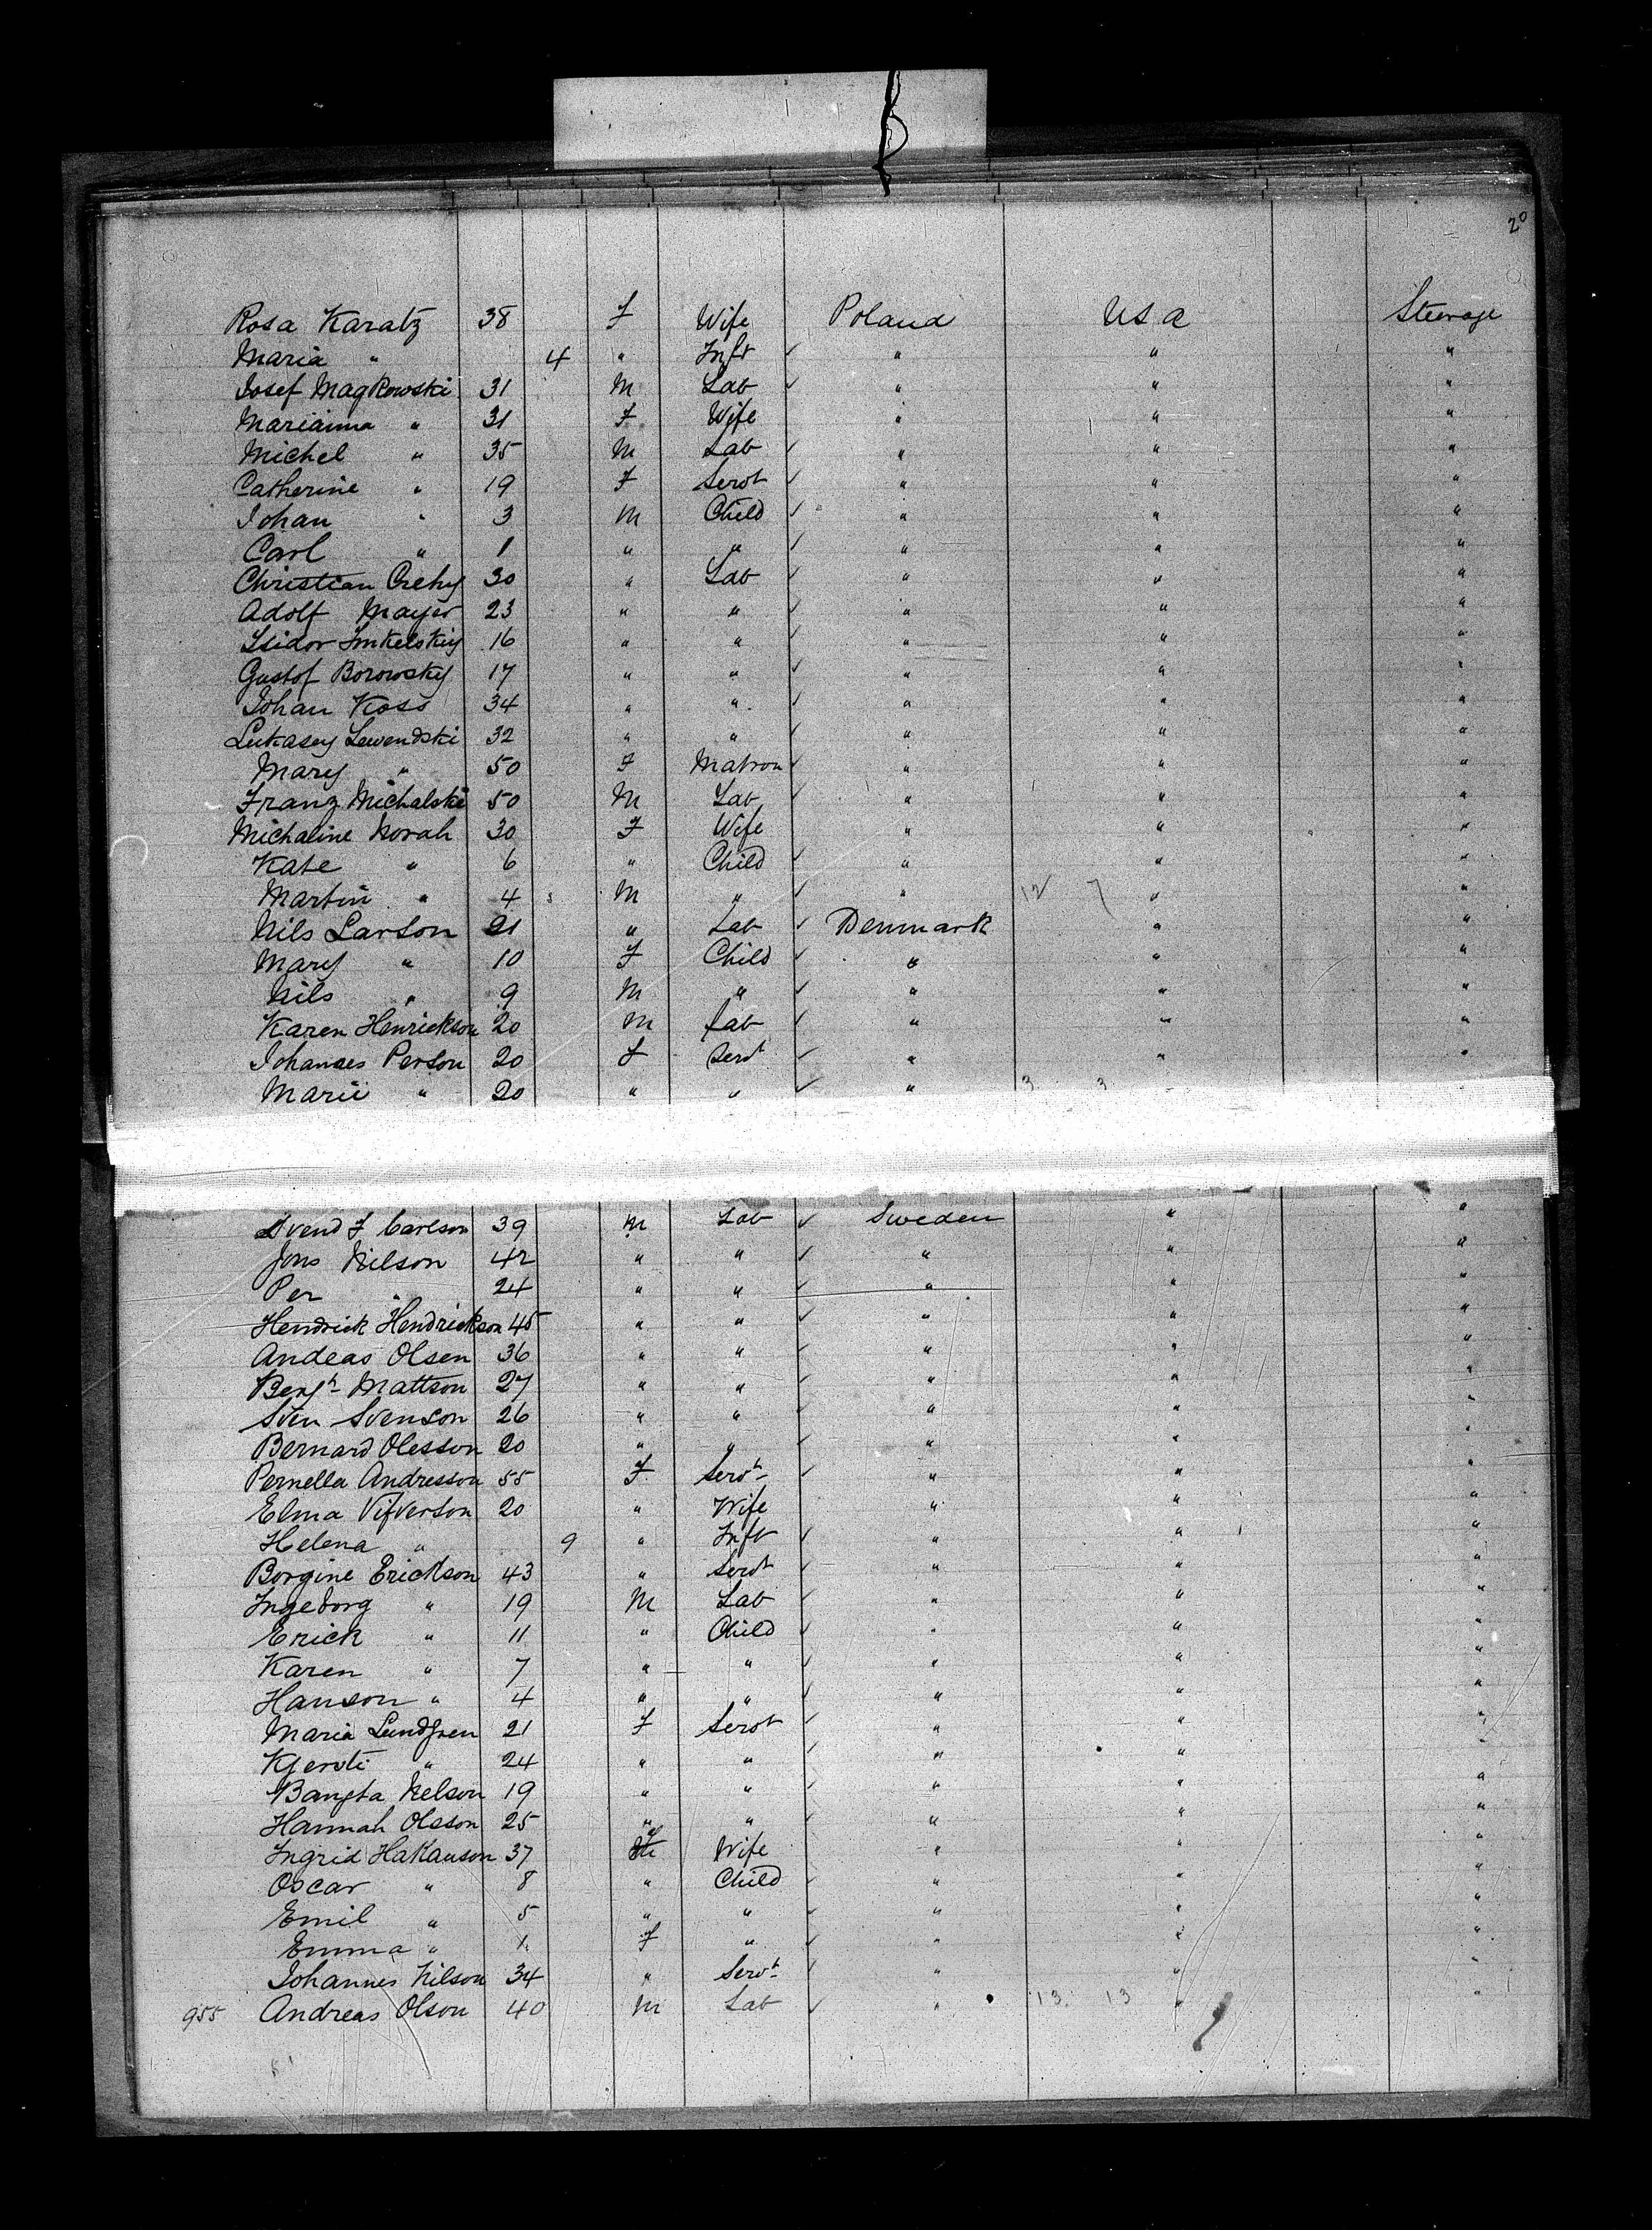 20
Rosa Karatz 38 F Wife Poland USA Steerage
Maria " 4 " Inft " " "
Josef Magkowski 31 M Lab " " "
Marianna " 31 F Wife " " "
Michel " 35 M Lab " " "
Catherine " 19 F Servt " " "
Johan " 3 M Child " " "
Carl " 1 " " " " "
Christian 30 " Lab " " "
Adolf Mayer 23 " " " " "
Isidor 16 " " " " "
Gustof Borowsky 17 " " " " "
Johan Koss 34 " " " " "
Lukasey Lewendski 32 " " " " "
Mary " 50 F Matron " " "
Franz Michalski 50 M Lab " " "
Michaline Novah 30 F Wife " " "
Kate " 6 " Child " " "
Martin " 4 M " " 12 7 " "
Nils Larson 21 " Lab Denmark " "
Mary " 10 F Child " " "
Nils " 9 M " " " "
Karen Henrickson 20 M Lab " " "
Johanses Person 20 F Servt " " "
Marii " 20 " " " 3 3
Svend F Carlson 39 M Lab Sweden " "
Jons Nilson 42 " " " " "
Per " 24 " " " " "
Hendrick Hendrickson 45 " " " " "
Andeas Olsen 36 " " " " "
Bengt Mattson 27 " " " " "
Sven Svenson 26 " " " " "
Bernard Olesson 20 " " " " "
Pernella Andresson 55 F Servt " " "
Elma Vifverson 20 " Wife " " "
Helena " 9 " Inft " " "
Borgine Erickson 43 " Servt " " "
Ingeborg " 19 M Lab " " "
Erick " 11 " Child " " "
Karen " 7 " " " " "
Hanson " 4 " " " " "
Maria Lundgren 21 F Servt " " "
Kjersti " 24 " " " " "
Bangta Nelson 19 " " " " "
Hannah Olsson 25 " " " " "
Ingrid Hakanson 37 Wife " " "
Oscar " 8 " Child " " "
Emil " 5 " " " " "
Emma " 1 F " " " "
Johannes Nilson 34 " Servt " " "
955 Andreas Olson 40 M Lab " 13 13 " "